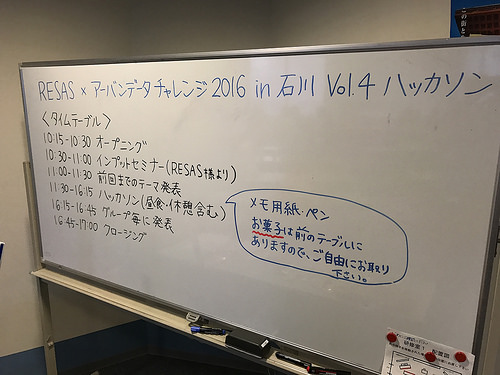 RESAS × アーバンデータチャレンジ 2016 in 石川 Vol.4 ハッカソン
<タイムテーブル>
10:15-10:30 オープニング
10:30-11:00 インプットセミナー(RESAS様より)
11:00-11:30 前回までのテーマ発表
11:30-16:15 ハッカソン(昼食・休憩含む)
16:15-16:45 グループ毎に発表
16:45-17:00 クロージング
メモ用紙・ペン
お菓子は前のテーブルに
ありますので、ご自由にお取り
下さい。
この街と